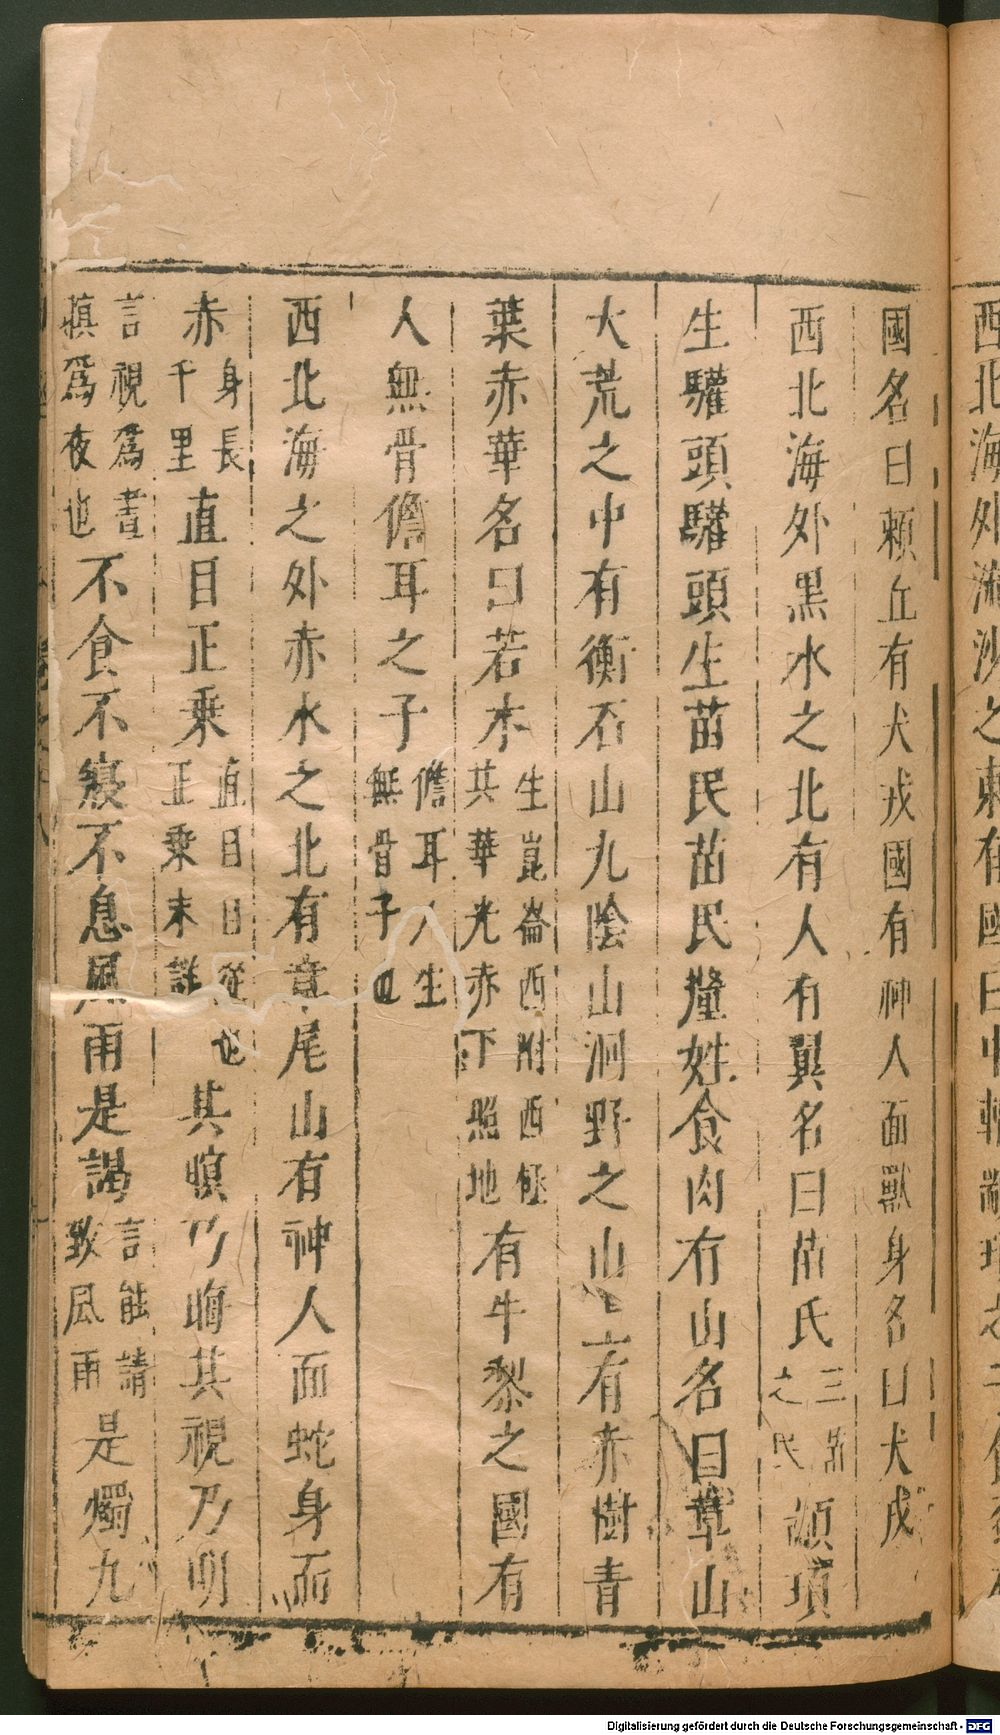 國名曰賴丘有犬戎國有神人面獸身名曰犬戎
西北海外黑水之北有人有翼名曰苗民三苗之民顓頊
生驩頭驩頭生苗民苗民釐姓食肉有山名曰章山
大荒之中有衡石山九陰山泂野之山上有赤樹青
葉赤華名曰若木生崑崙西附西極其華光赤下照地有牛黎之國有
人無骨儋耳之子儋耳人生無骨子也
西北海之外赤水之北有章尾山有神人面蛇身而
赤身長千里直目正乗直目目從也正乗未詳其瞑乃晦其視乃明
言視爲晝瞑爲夜也不食不寢不息風雨是謁言能請致風雨是燭九
西北海外流沙之東有國曰中
Digitalisierung gefördert durch die Deutsche Forschungsgemeinschaft - DFG